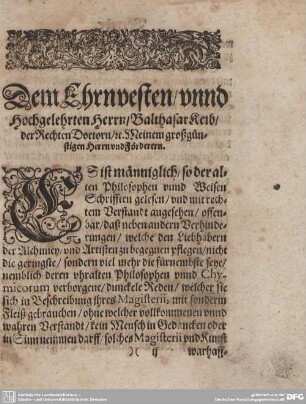 Dem Ehrnvesten/ vnnd
Hochgelehrten Herrn/ Balthasar Keib/
der Rechten Doctorn/ ꝛc. Meinem großgün-
stigen Herrn vnd Förderern.
ES ist männiglich/ so der al-
ten Philosophen vnnd Weisen
Schrifften gelesen/ vnd mit rech-
tem Verstandt angesehen/ offen-
bar/ daß neben andern Verhinde-
rungen/ welche den Liebhabern
der Alchimey/ vnd Artisten zu begegnen pflegen/ nicht
die geringste/ sondern viel mehr die fürnembste sey/
nemblich deren vhralten Philosophen vnnd Chy-
micorum verborgene/ dunckele Reden/ welcher sie
sich in Beschreibung ihres Magisterii, mit sonderm
Fleiß gebrauchen/ ohne welcher vollkommenen vnnd
wahren Verstandt/ kein Mensch in Gedancken oder
in Sinn nemmen darff/ solches Magisterii vnd Kunst
ij warhaff-
DFG